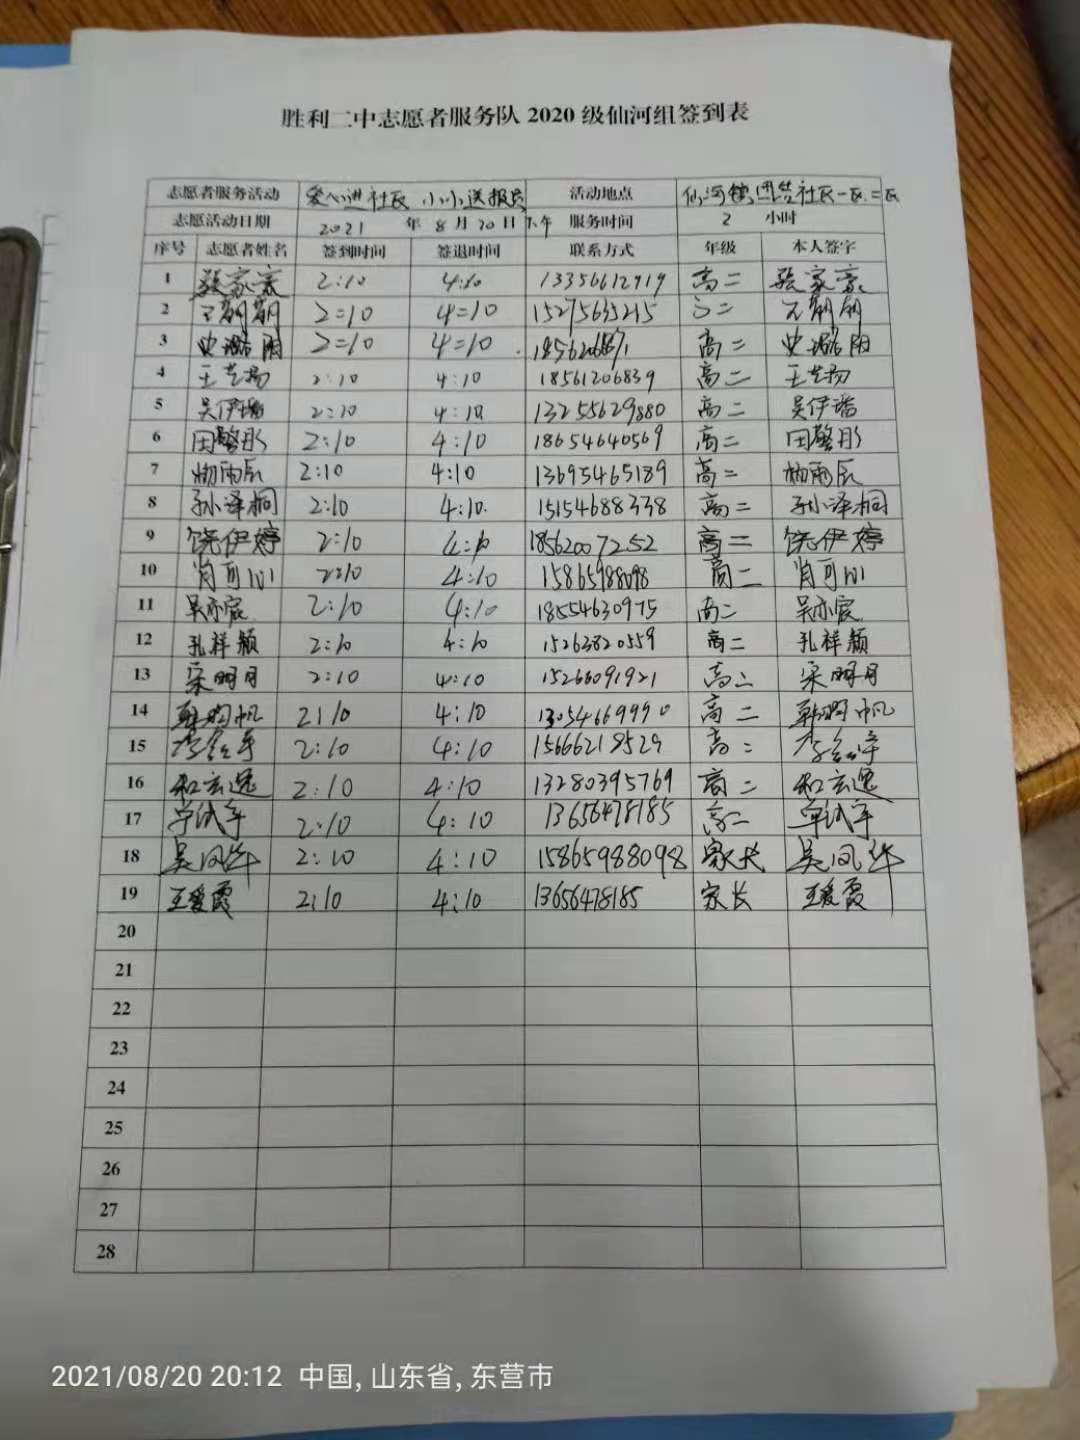 胜利二中志愿者服务队 2020 级仙河组签到表
志愿者服务活动 爱心进社区 小小送报员 活动地点 仙河镇团结社区一区.二区
志愿活动日期 2021 年 8 月 20 日 下午 服务时间 2 小时
序号 志愿者姓名 签到时间 签退时间 联系方式 年级 本人签字
1 张家豪 2:10 4:10 13356612919 高二 张家豪
2 2=10 4=10 15275635215 高二
3 史璐阳 2=10 4=10 高二 史璐阳
4 王艺扬 2:10 4:10 18561206839 高二 王艺扬
5 吴伊璠 2:10 4:10 13255629880 高二 吴伊璠
6 田馨彤 2:10 4:10 18654640569 高二 田馨彤
7 杨雨辰 2:10 4:10 13695465189 高二 杨雨辰
8 孙泽桐 2:10 4:10. 15154688338 高二 孙泽桐
9 饶伊婷 2:10 4:10 18562007252 高二 饶伊婷
10 肖可心 2:10 4:10 15865988098 高二 肖可心
11 吴亦宸 2:10 4:10 18554630975 高二 吴亦宸
12 孔祥颖 2:10 4:10 15263820559 高二 孔祥颖
13 宋明月 2:10 4:10 15266091921 高二 宋明月
14 韩明帆 2:10 4:10 13054669990 高二 韩明帆
15 2:10 4:10 15666218529 高二
16 和玄逸 2:10 4:10 13280395769 高二 和玄逸
17 单试宇 2:10 4:10 13656478185 高二 单试宇
18 吴凤华 2:10 4:10 15865988098 家长 吴凤华
19 王爱霞 2:10 4:10 13656478185 家长 王爱霞
20
21
22
23
24
25
26
27
28
2021/08/20 20:12 中国, 山东省, 东营市